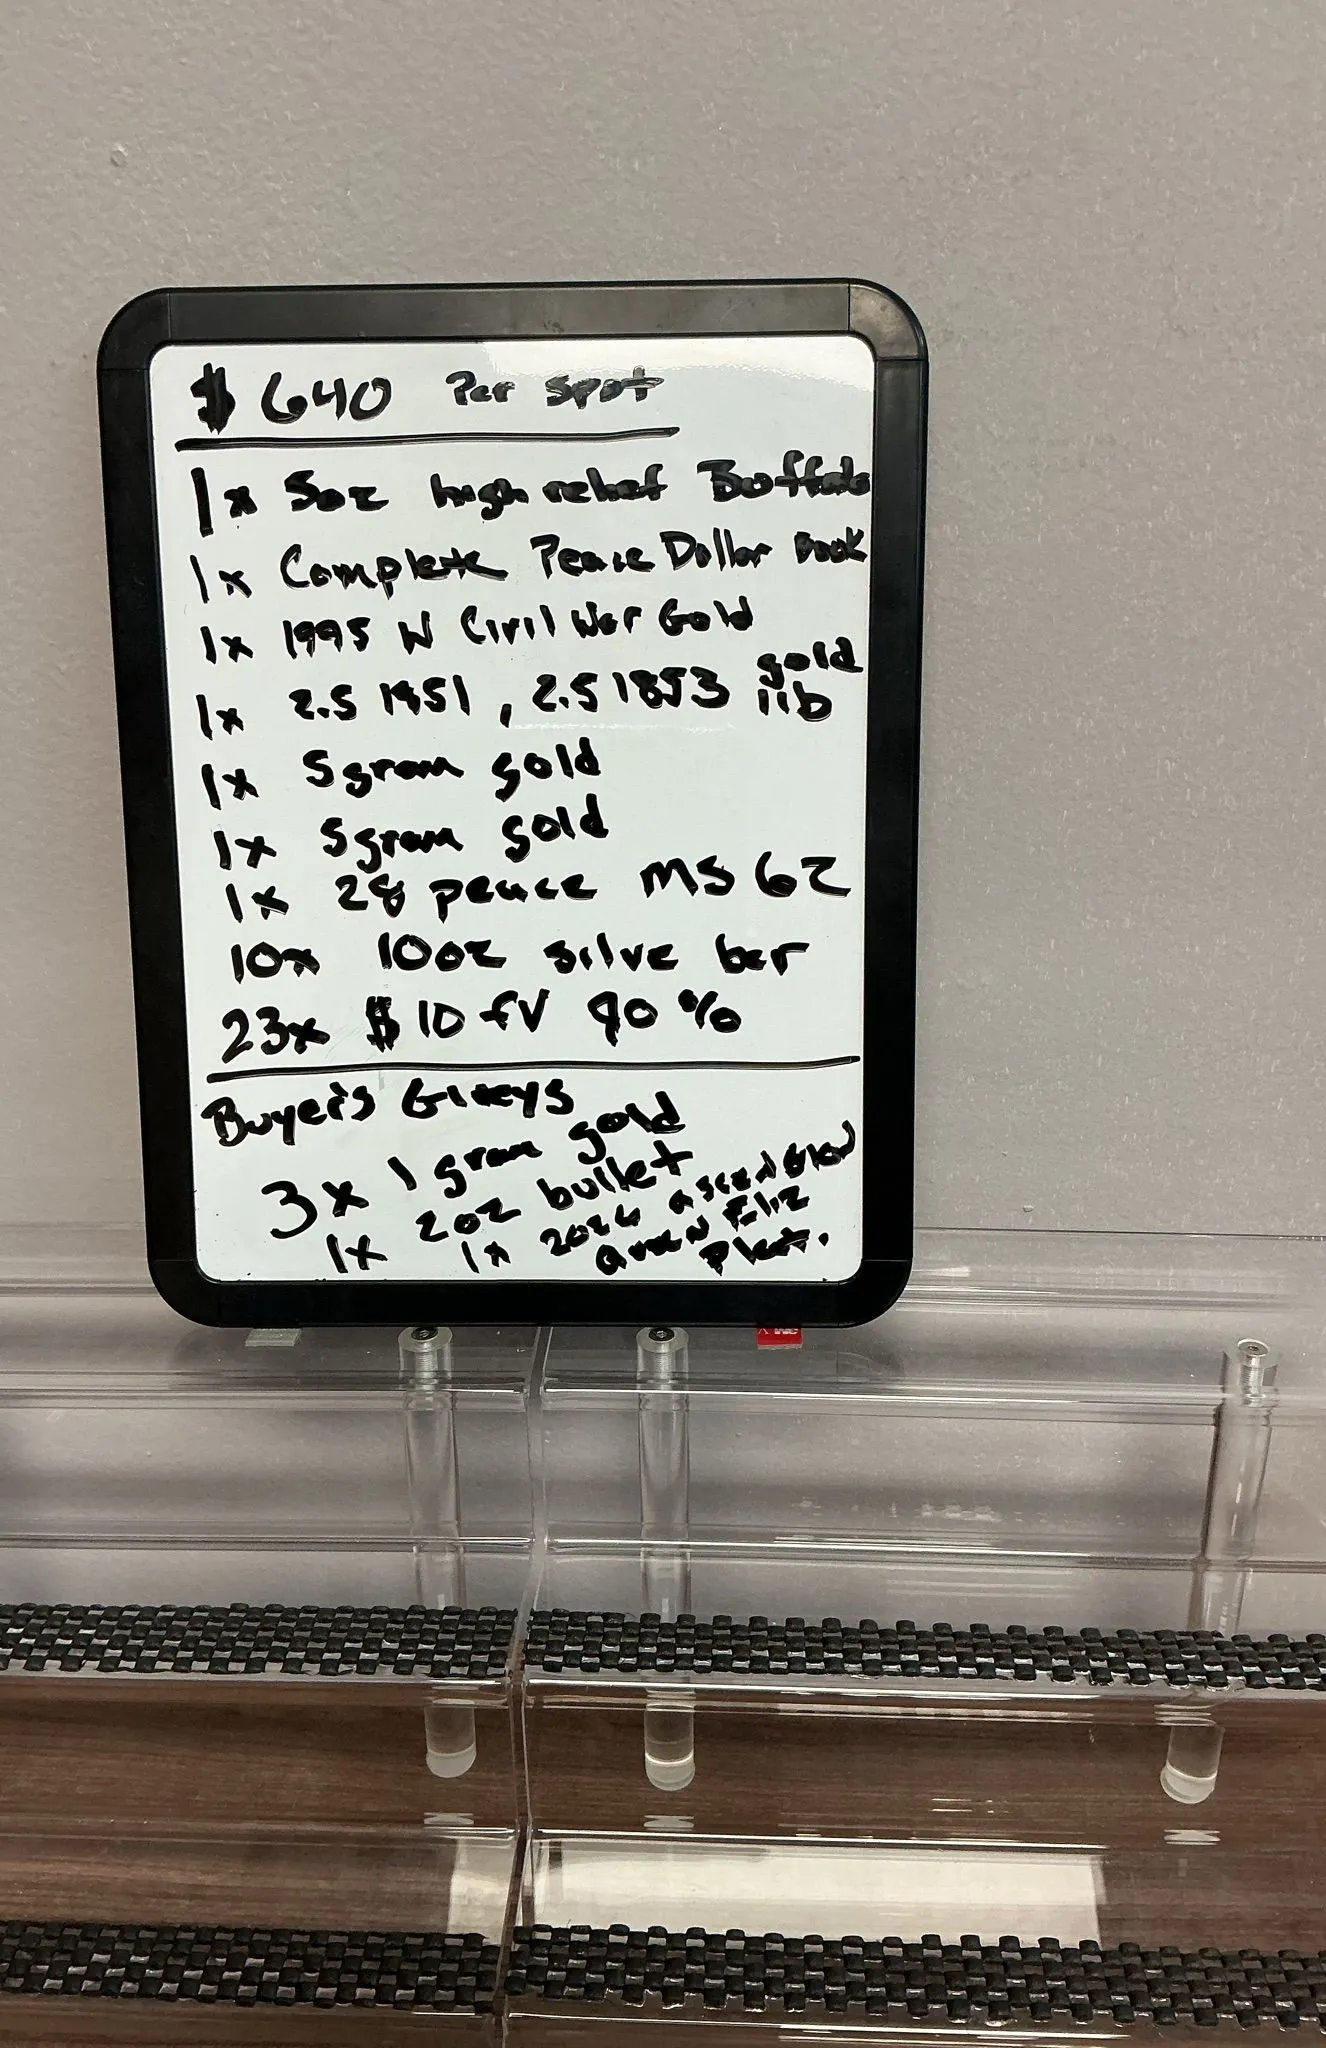 $640 Per spot
1x 5oz high relief Buffalo
1x Complete Peace Dollar book
1x 1995 W Civil War Gold
1x 2.5 1851, 2.5 1853 gold lib
1x 5gram gold
1x 5gram gold
1x 28 peace MS 62
10x 10oz silve bar
23x $10 fV 90%
Buyer's
3x 1 gram gold
1x 2oz bullet
1x 2026
Queen Eliz
Plat.